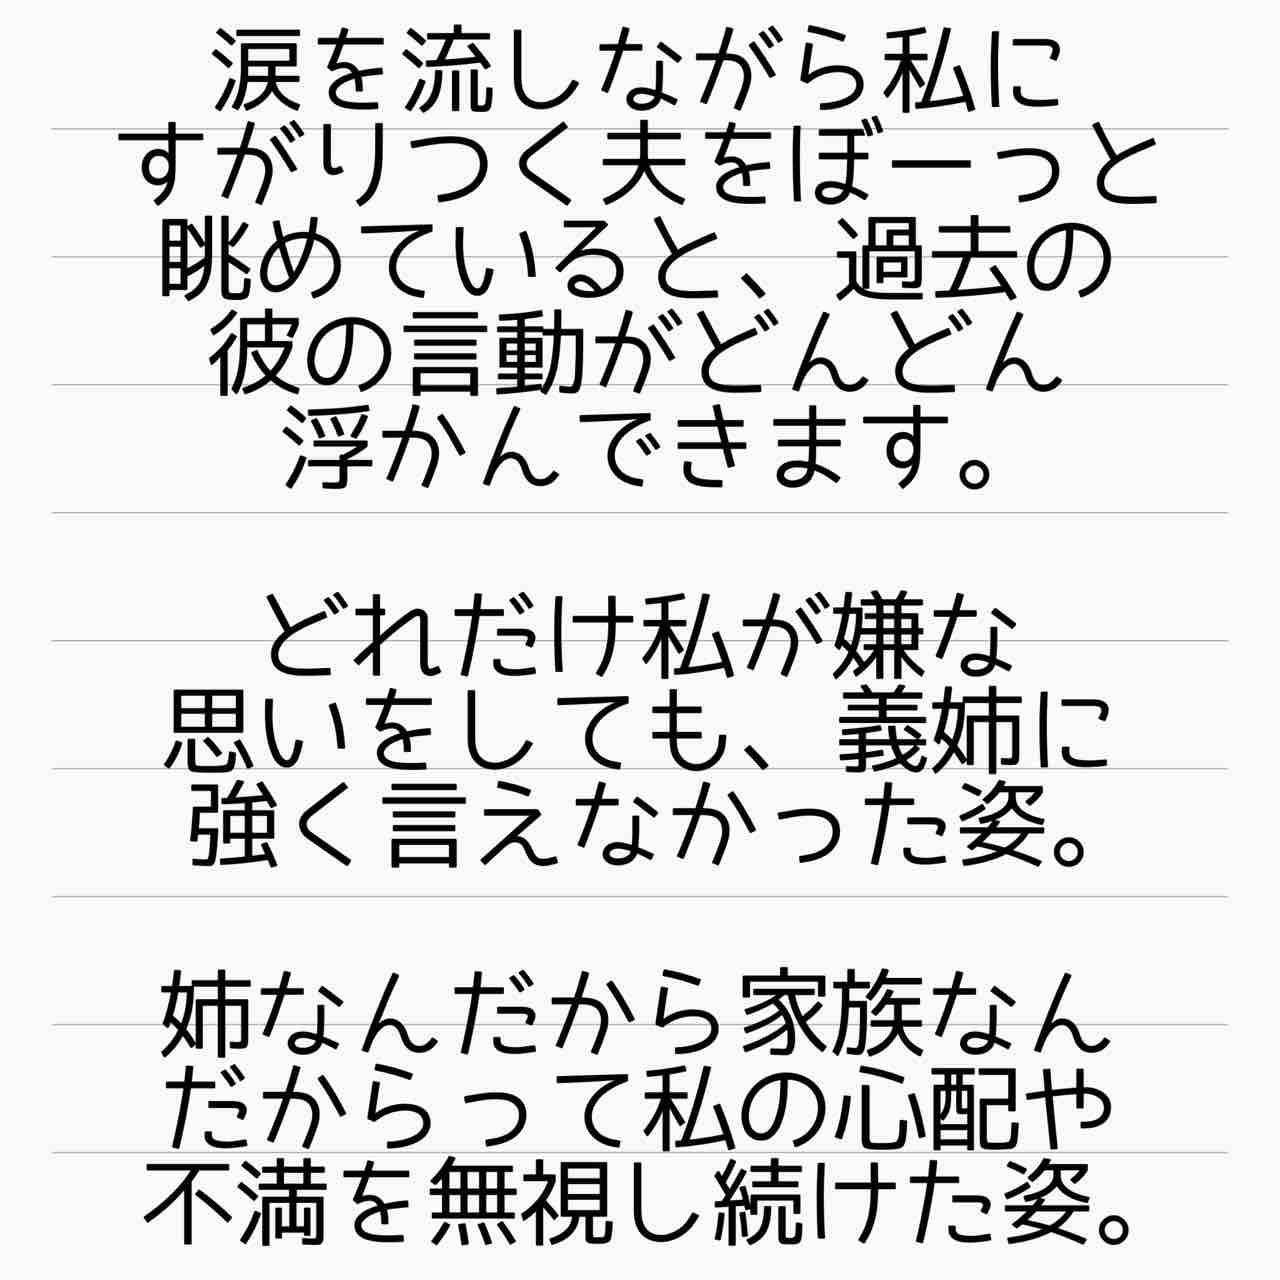 涙を流しながら私に
すがりつく夫をぼーっと
眺めていると、過去の
彼の言動がどんどん
浮かんできます。
どれだけ私が嫌な
思いをしても、義姉に
強く言えなかった姿。
姉なんだから家族なん
だからって私の心配や
不満を無視し続けた姿。